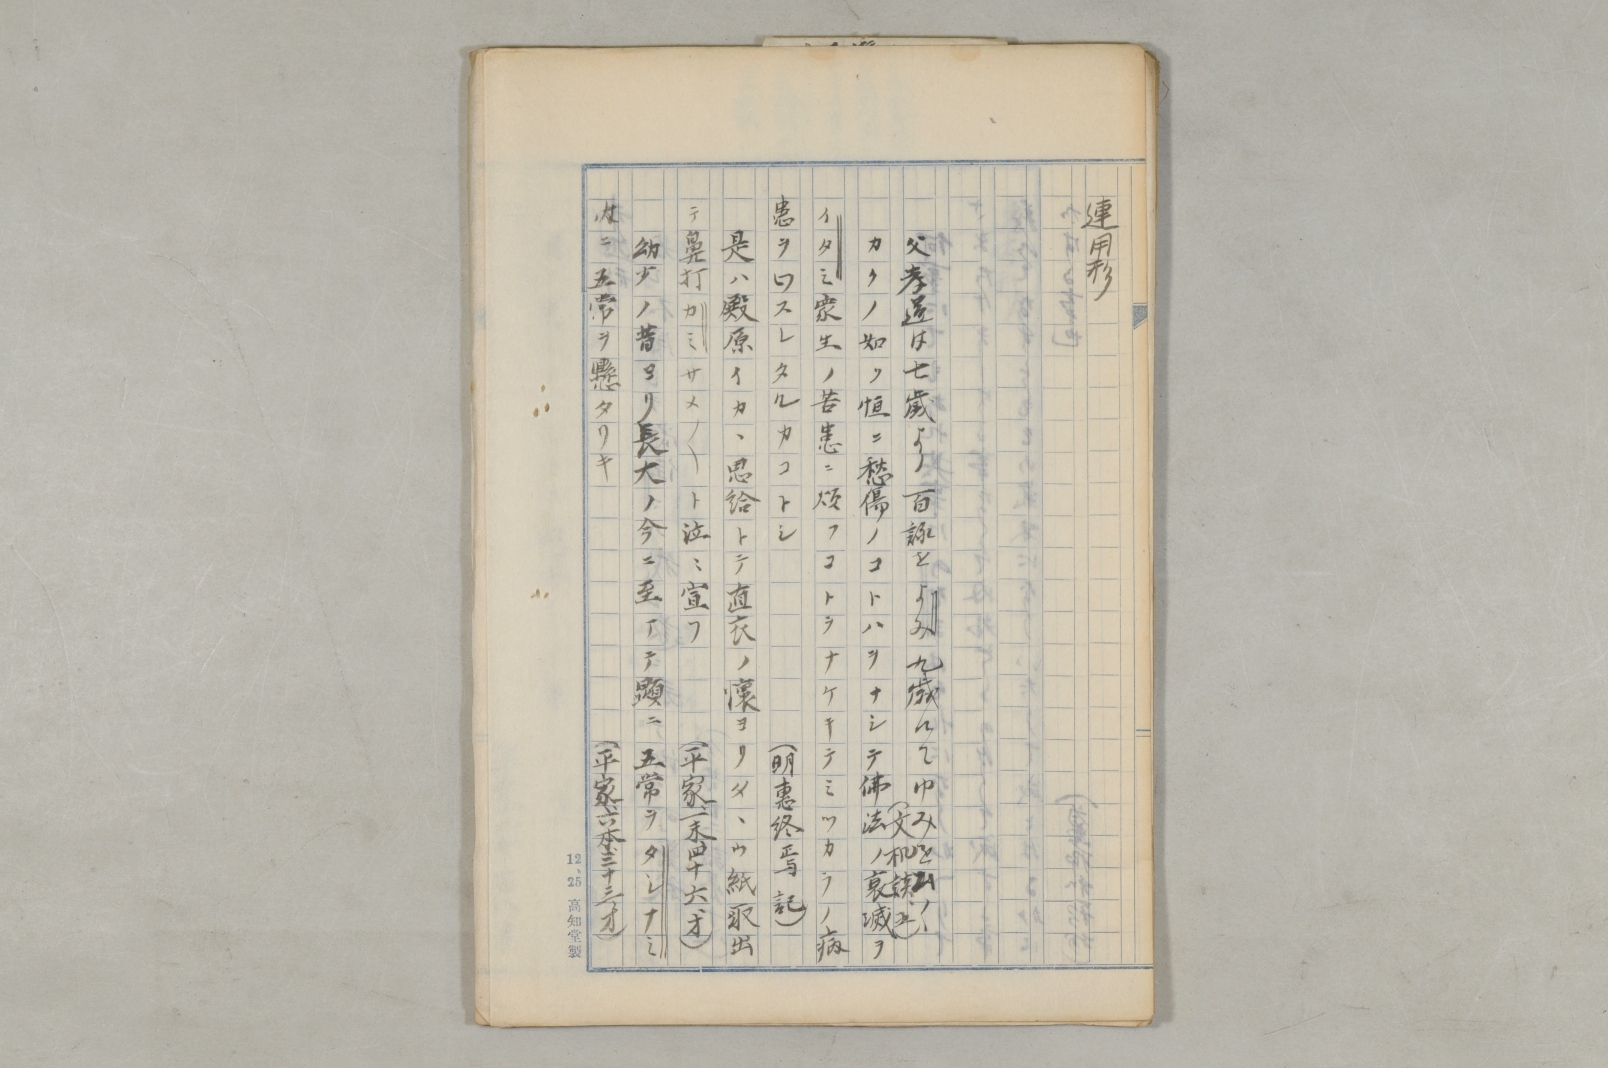 連用形
父孝道は七歳より百詠をよみ九歳にてゆみを
(文机談
カクノ如ク恒ニ愁傷ノコトハヲナシテ佛法ノ衰滅ヲ
イタミ衆生ノ苦患ニ煩フコトヲナケキテミツカラノ病
患ヲワスレタルカコトシ (明惠終焉記)
是ハ殿原イカヽ思給トテ直衣ノ懐ヨリタヽウ紙取出
テ鼻打カミサメ〱ト泣ミ宣フ (平家、二末四十六、オ)
幼少ノ昔ヨリ長大ノ今ニ至マテ顯ニ五常ヲタシナミ
内ニ五常ヲ懸タリキ (平家六本三十三オ)
12、25 高知堂製